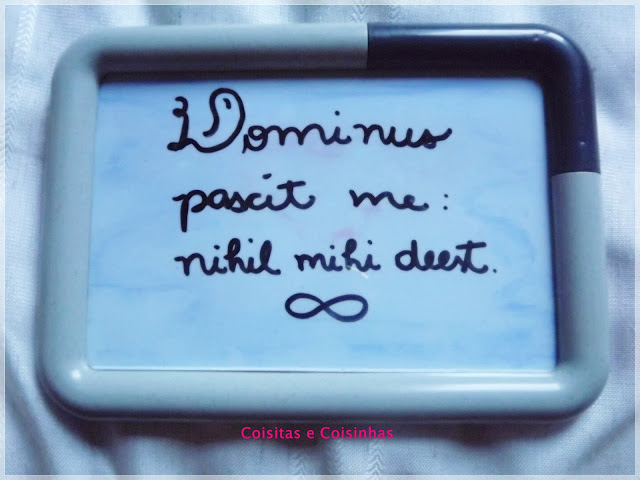 Dominus
pascit me:
nihil mihi deest.
Coisitas e Coisinhas